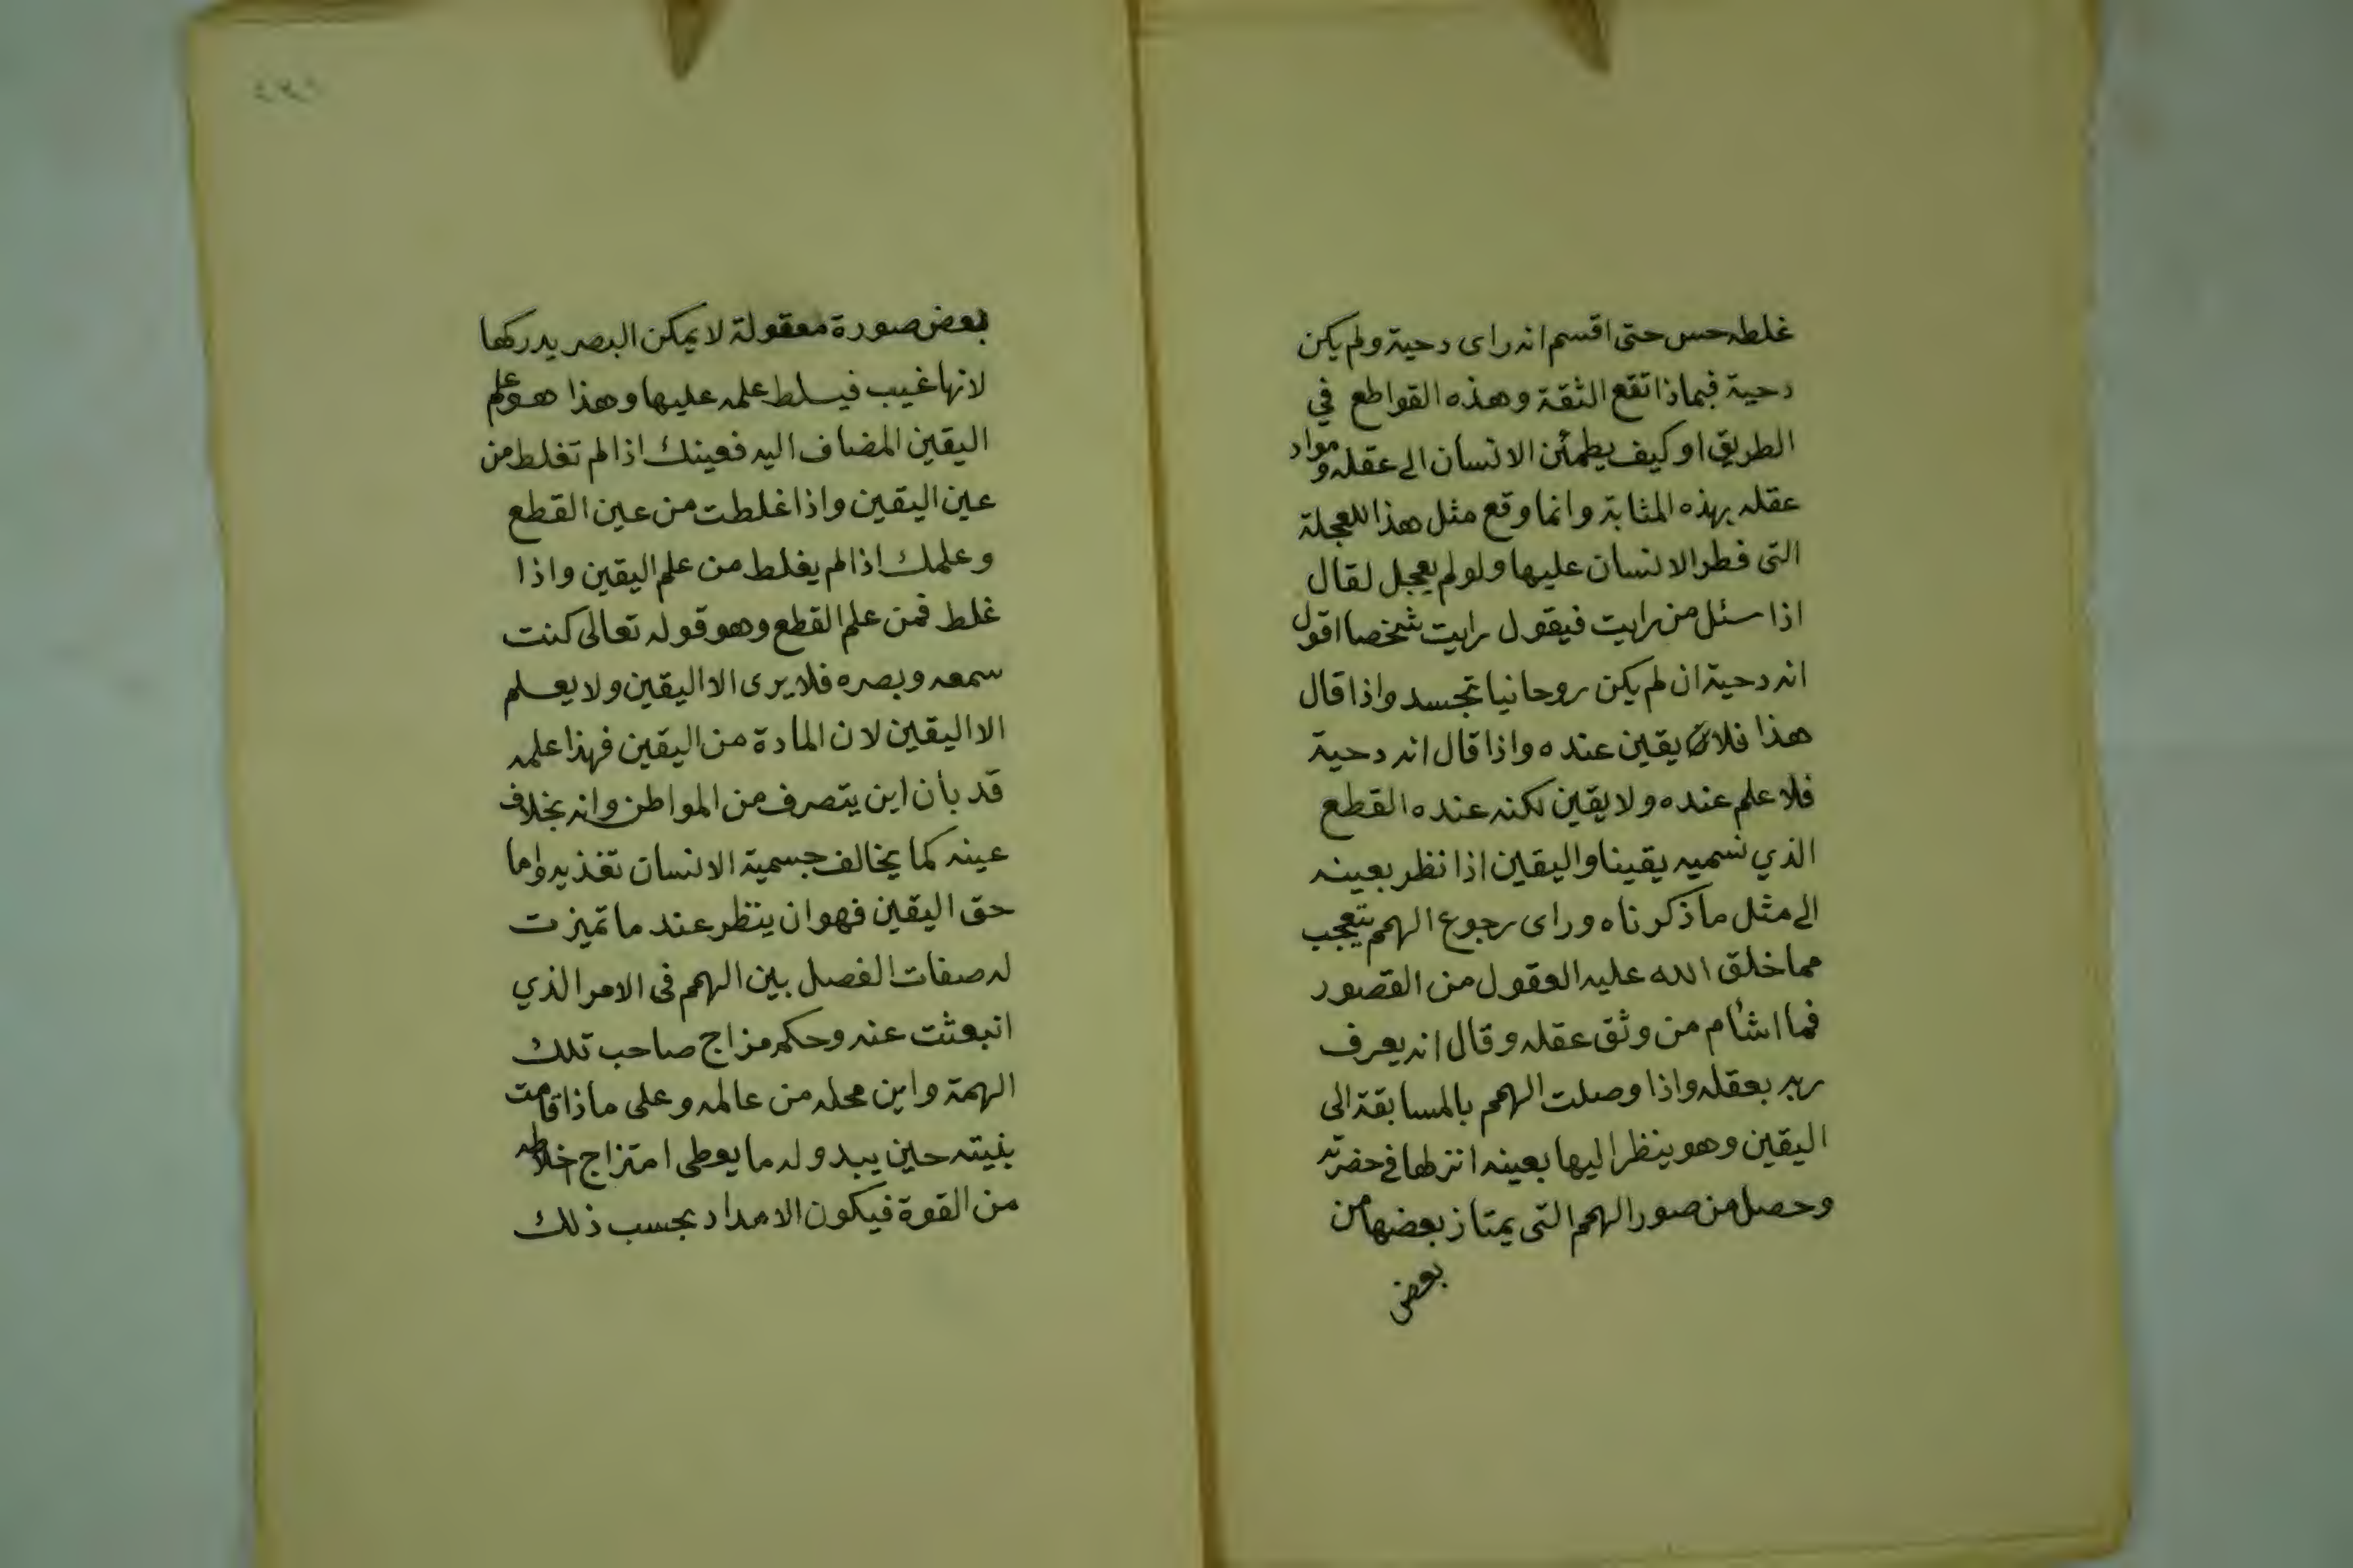 غلطه حس حتى اقسم انه راى دحية ولم يكن
دحية فبماذا تقع الثقة وهذه القواطع في
الطريق او كيف يطمئن الانسان الى عقله ومواد
عقله بهذه المثابة وانما وقع مثل هذا للعجلة
التى فطر الانسان عليها ولو لم يعجل لقال
اذا سئل من رايت فيقول رايت شخصا اقول
انه دحية ان لم يكن روحانيا تجسد واذا قال
هذا فلا يقين عنده واذا قال انه دحية
فلا علم عنده ولا يقين لكنه عنده القطع
الذي نسميه يقينا واليقين اذا نظر بعينه
الى مثل ما ذكرناه وراى رجوع الهمم يتعجب
مما خلق الله عليه العقول من القصور
فما اشأم من وثق عقله وقال انه يعرف
ربه بعقله واذا وصلت الهمم بالمسابقة الى
اليقين وهو ينظر اليها بعينه انزلها في حضرته
وحصل من صور الهمم التى يمتاز بعضها من
بعض
بعض صورة معقولة لا يمكن البصر يدركها
لانها غيب فيسلط علمه عليها وهذا هو علم
اليقين المضاف اليه فعينك اذا لم تغلط من
عين اليقين واذا غلطت من عين القطع
وعلمك اذا لم يغلط من علم اليقين واذا
غلط فمن علم القطع وهو قوله تعالى كنت
سمعه وبصره فلا يرى الا اليقين ولا يعلم
الا اليقين لان المادة من اليقين فهذا علمه
قد بان اين يتصرف من المواطن وانه بخلاف
عينه كما يخالف جسمية الانسان تغذيه واما
حق اليقين فهو ان ينظر عند ما تميزت
له صفات الفصل بين الهمم فى الامر الذي
انبعثت عنه وحكم مزاج صاحب تلك
الهمة واين محله من عالمه وعلى ماذا قامت
بنيته حين يبدو له ما يعطى امتزاج خلاطه
من القوة فيكون الامداد بحسب ذلك